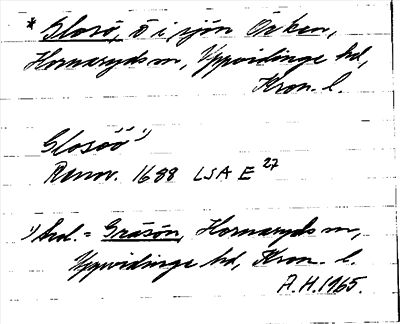 * Glosö, ö i sjön Örken,
Hornaryds sn, Uppvidinge hd,
Kron. l.
Glosöö ¹)
Rann. 1688 LSA E 27
¹) Avd. = Gråsön, Hornaryds sn,
Uppvidinge hd, Kron. l.
A.H. 1965.